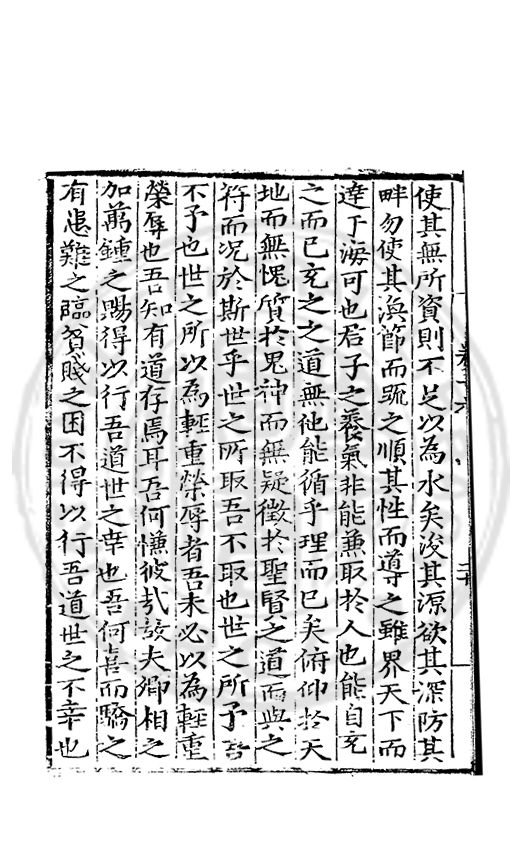 使其無所資則不足以為水矣浚其源欲其深防其
畔勿使其滇節而䟽之順其性而導之雖界天下而
達于海可也君子之養氣非能兼取扵人也能自充
之而已充之之道無他能循乎理而已矣俯仰扵天
地而無愧質扵鬼神而無疑徵扵聖賢之道而與之
符而况於斯世乎世之所取吾不取也世之所予吾
不予也世之所以為輕重榮辱者吾未必以為輕重
榮辱也吾知有道存焉耳吾何慊彼㦲故夫卿相之
加萬鍾之賜得以行吾道世之幸也吾何喜而驕之
有患難之臨貧賤之困不得以行吾道世之不幸也